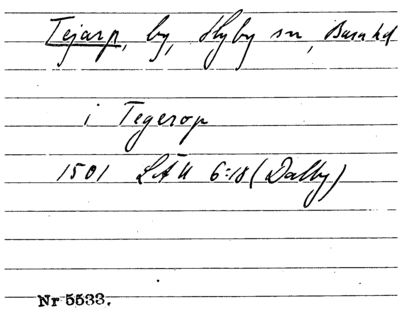 Tejarp, by, Hyby sn, Bara hd
i Tegerop
1501 LÄU 6:18 (Dalby)
Nr 5533.